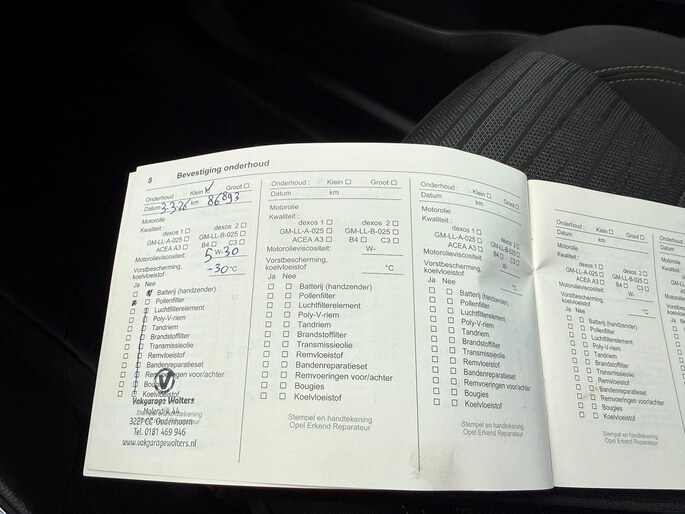 8 Bevestiging onderhoud
Onderhoud : Klein ☑ Groot ☐
Datum 3-3-26 km 86893
Motorolie
Kwaliteit :
dexos 1 ☐ dexos 2 ☐
GM-LL-A-025 ☐ GM-LL-B-025 ☐
ACEA A3 ☐ B4 ☐ C3 ☐
Motorolieviscositeit: 5 W-30
Vorstbescherming,
koelvloeistof -30 °C
Ja Nee
Batterij (handzender)
Pollenfilter
Luchtfilterelement
Poly-V-riem
Tandriem
Brandstoffilter
Transmissieolie
Remvloeistof
Bandenreparatieset
Remvoeringen voor/achter
Bougies
Koelvloeistof
Vakgarage Wolters
Molendijk 44
Stempel en handtekening
3227 CC Oudenhoorn
Tel. 0181 469 946
www.vakgaragewolters.nl
Onderhoud : Klein ☐ Groot ☐
Datum km
Motorolie
Kwaliteit :
dexos 1 ☐ dexos 2 ☐
GM-LL-A-025 ☐ GM-LL-B-025 ☐
ACEA A3 ☐ B4 ☐ C3 ☐
Motorolieviscositeit: W-
Vorstbescherming,
koelvloeistof °C
Ja Nee
☐ ☐ Batterij (handzender)
☐ ☐ Pollenfilter
☐ ☐ Luchtfilterelement
☐ ☐ Poly-V-riem
☐ ☐ Tandriem
☐ ☐ Brandstoffilter
☐ ☐ Transmissieolie
☐ ☐ Remvloeistof
☐ ☐ Bandenreparatieset
☐ ☐ Remvoeringen voor/achter
☐ ☐ Bougies
☐ ☐ Koelvloeistof
Stempel en handtekening
Opel Erkend Reparateur
Onderhoud : Klein ☐ Groot ☐
Datum km
Motorolie
Kwaliteit :
dexos 1 ☐ dexos 2 ☐
GM-LL-A-025 ☐ GM-LL-B-025 ☐
ACEA A3 ☐ B4 ☐ C3 ☐
Motorolieviscositeit: W-
Vorstbescherming,
koelvloeistof °C
Ja Nee
☐ ☐ Batterij (handzender)
☐ ☐ Pollenfilter
☐ ☐ Luchtfilterelement
☐ ☐ Poly-V-riem
☐ ☐ Tandriem
☐ ☐ Brandstoffilter
☐ ☐ Transmissieolie
☐ ☐ Remvloeistof
☐ ☐ Bandenreparatieset
☐ ☐ Remvoeringen voor/achter
☐ ☐ Bougies
☐ ☐ Koelvloeistof
Stempel en handtekening
Opel Erkend Reparateur
Onderhoud : Klein ☐ Groot ☐
Datum km
Motorolie
Kwaliteit :
dexos 1 ☐ dexos 2 ☐
GM-LL-A-025 ☐ GM-LL-B-025 ☐
ACEA A3 ☐ B4 ☐ C3 ☐
Motorolieviscositeit: W-
Vorstbescherming,
koelvloeistof °C
Ja Nee
☐ ☐ Batterij (handzender)
☐ ☐ Pollenfilter
☐ ☐ Luchtfilterelement
☐ ☐ Poly-V-riem
☐ ☐ Tandriem
☐ ☐ Brandstoffilter
☐ ☐ Transmissieolie
☐ ☐ Remvloeistof
☐ ☐ Bandenreparatieset
☐ ☐ Remvoeringen voor/achter
☐ ☐ Bougies
☐ ☐ Koelvloeistof
Stempel en handtekening
Opel Erkend Reparateur